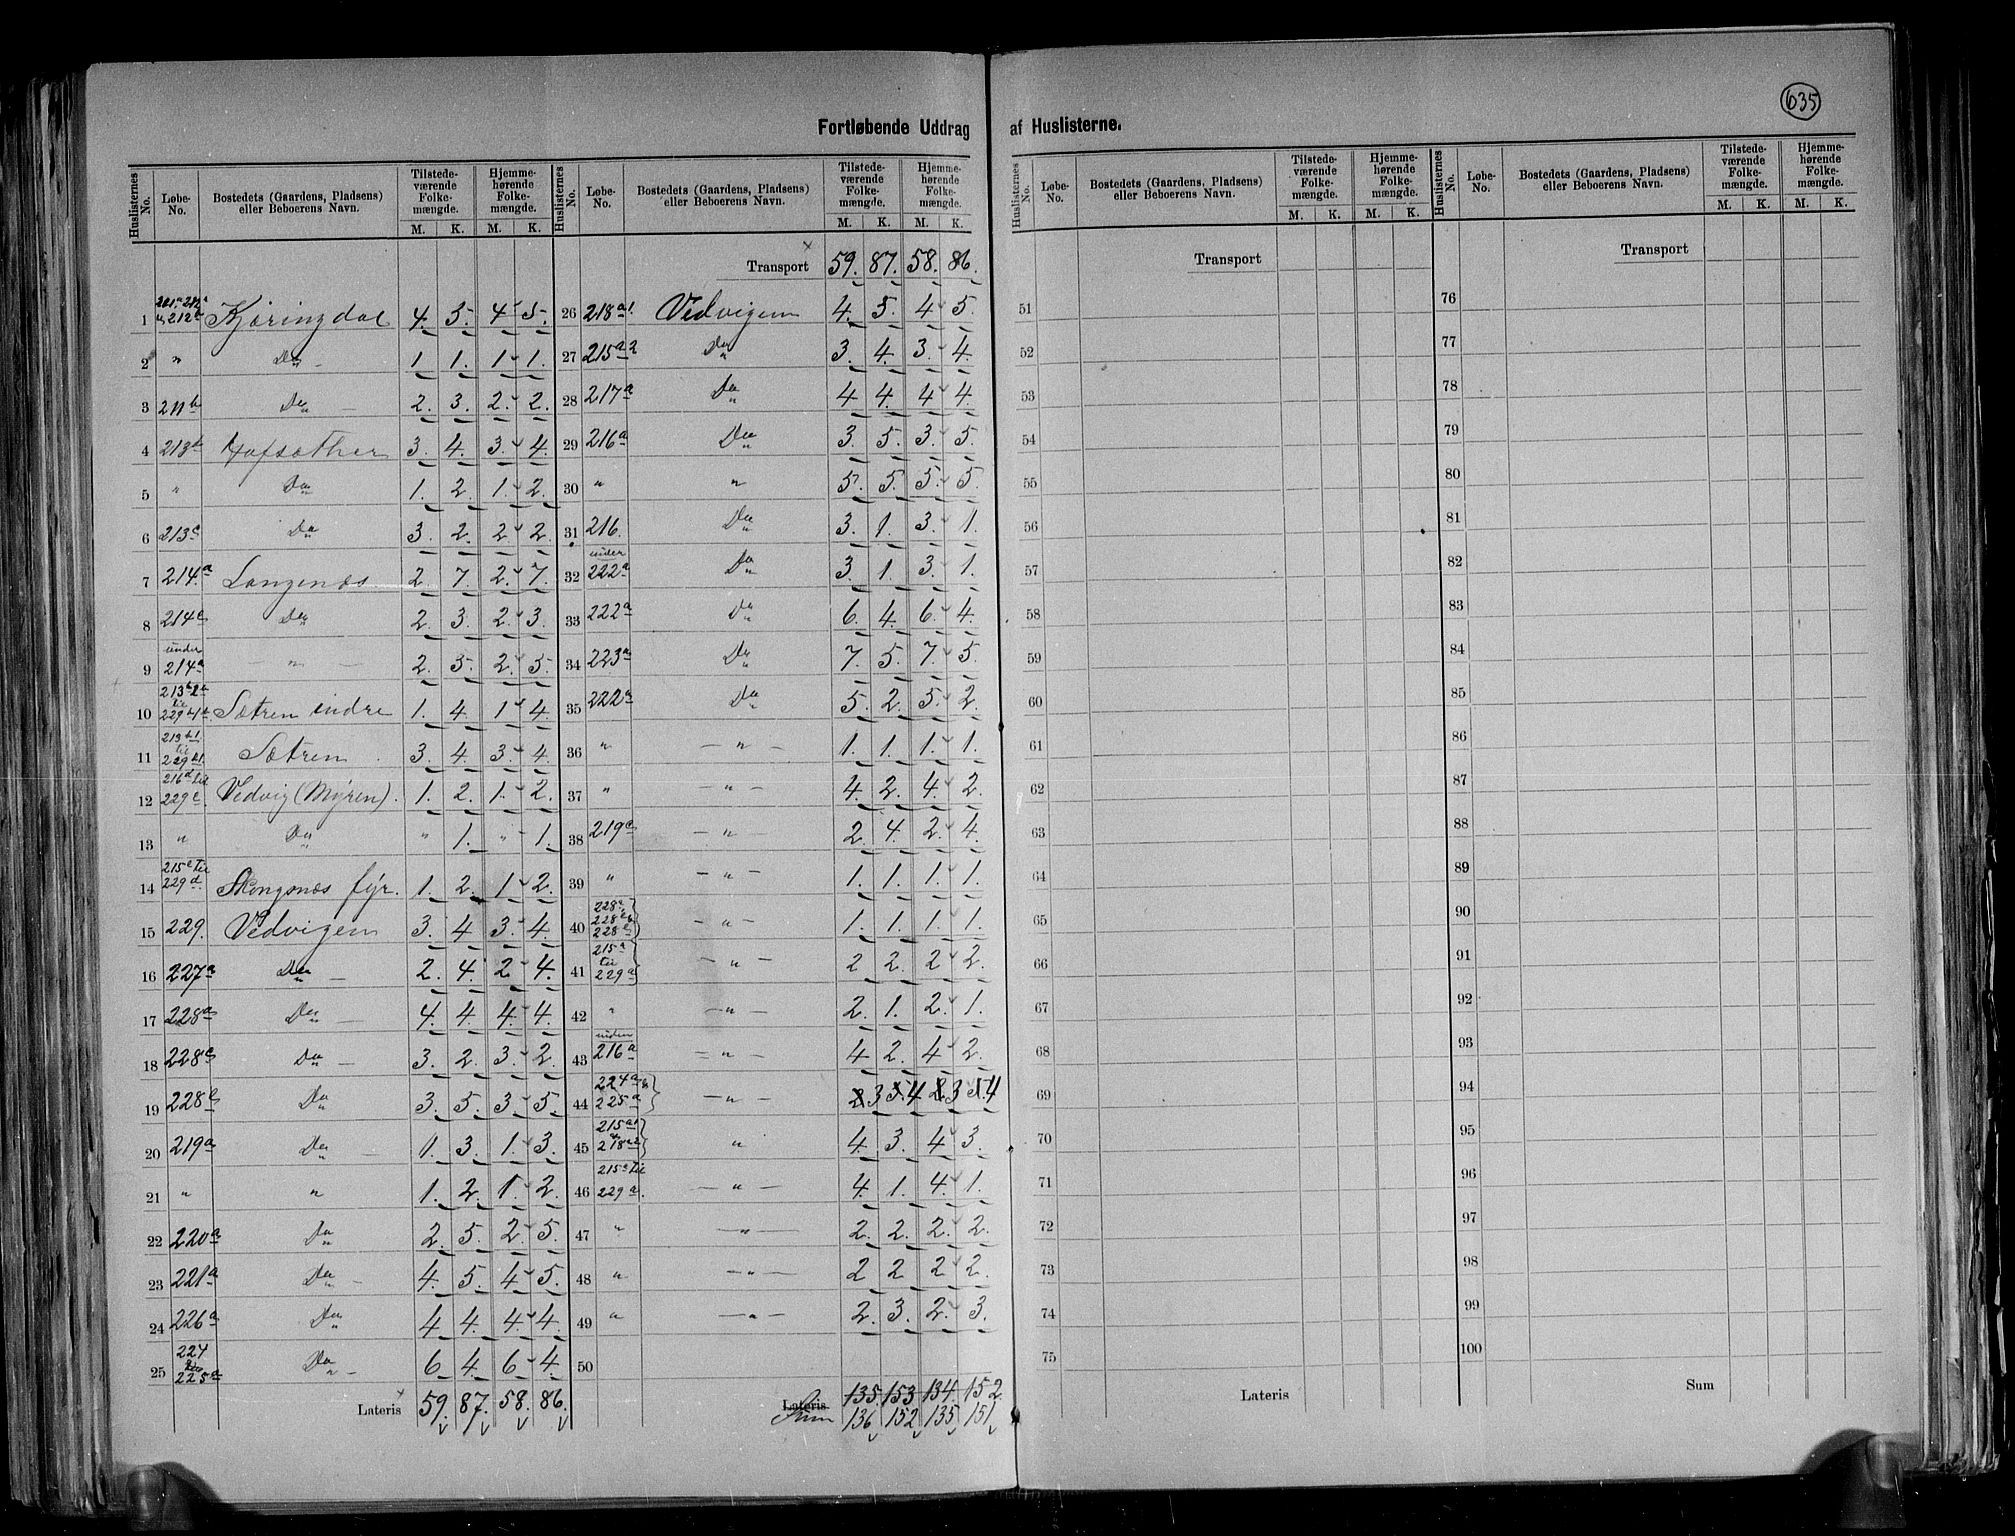 635
Fortløbende Uddrag af Huslisterne.
Huslisternes No. Løbe-No. Bostedets (Gaardens, Pladsens) eller Beboerens Navn. Tilstedeværende Folkemængde. M. K. Hjemmehørende Folkemængde. M. K.
1 212a Kjøringdal 4. 5. 4. 5.
2 " Do 1. 1. 1. 1.
3 211b Do 2. 3. 2. 2.
4 213b Hofsæther 3. 4. 3. 4.
5 " Do 1. 2. 1. 2.
6 213c Do 3. 2. 2. 2.
7 214a Langenæs 2. 7. 2. 7.
8 214c Do 2. 3. 2. 3.
9 under 214a " 2. 5. 2. 5.
10 Sætren indre 1. 4. 1. 4.
11 213b1 til 229b1. Sætren 3. 4. 3. 4.
12 216d til 229c. Vedvig (Myren). 1. 2. 1. 2.
13 " Do " 1. " 1.
14 215c til 229d. Skongsnæs fyr. 1. 2. 1. 2.
15 229. Vedvigen 3. 4. 3. 4.
16 227a Do 2. 4. 2. 4.
17 228a Do 4. 4. 4. 4.
18 228c Do 3. 2. 3. 2.
19 228b Do 3. 5. 3. 5.
20 219a Do 1. 3. 1. 3.
21 " " 1. 2. 1. 2.
22 220a Do 2. 5. 2. 5.
23 221a Do 4. 5. 4. 5.
24 226a Do 4. 4. 4. 4.
25 224 225a Do 6. 4. 6. 4.
Lateris 59. 87. 58. 86.
Huslisternes No. Løbe-No. Bostedets (Gaardens, Pladsens) eller Beboerens Navn. Tilstedeværende Folkemængde. M. K. Hjemmehørende Folkemængde. M. K.
Transport 59. 87. 58. 86.
26 218a1. Vedvigen 4. 5. 4. 5.
27 215a2 Do 3. 4. 3. 4.
28 217a Do 4 4. 4 4.
29 216a Do 3. 5. 3. 5.
30 " " 5. 5. 5. 5.
31 216. Do 3. 1. 3. 1.
32 under 222a Do 3. 1. 3. 1.
33 222a Do 6. 4. 6. 4.
34 223a Do 7. 5. 7. 5.
35 222a Do 5. 2. 5. 2.
36 " " 1. 1. 1. 1.
37 " " 4. 2. 4. 2.
38 219c " 2. 4. 2. 4.
39 " " 1. 1. 1. 1.
40 228a 228b 228c " 1. 1. 1. 1.
41 215a til 229a " 2 2. 2 2.
42 " " 2. 1. 2. 1.
43 under 216a " 4 2. 4 2.
44 224a 225a " 2 3 5. 4 2 3 5. 4
45 215a1 218a2 " 4. 3. 4. 3.
46 215c til 229a. " 4. 1. 4. 1.
47 " " 2. 2. 2. 2.
48 " " 2 2 2 2.
49 " " 2. 3. 2. 3.
50
Lateris 135. 153 134. 152.
Sum 136 152 135 151
Huslisternes No. Løbe-No. Bostedets (Gaardens, Pladsens) eller Beboerens Navn. Tilstedeværende Folkemængde. M. K. Hjemmehørende Folkemængde. M. K.
Transport
51
52
53
54
55
56
57
58
59
60
61
62
63
64
65
66
67
68
69
70
71
72
73
74
75
Lateris
Huslisternes No. Løbe-No. Bostedets (Gaardens, Pladsens) eller Beboerens Navn. Tilstedeværende Folkemængde. M. K. Hjemmehørende Folkemængde. M. K.
Transport
76
77
78
79
80
81
82
83
84
85
86
87
88
89
90
91
92
93
94
95
96
97
98
99
100
Sum